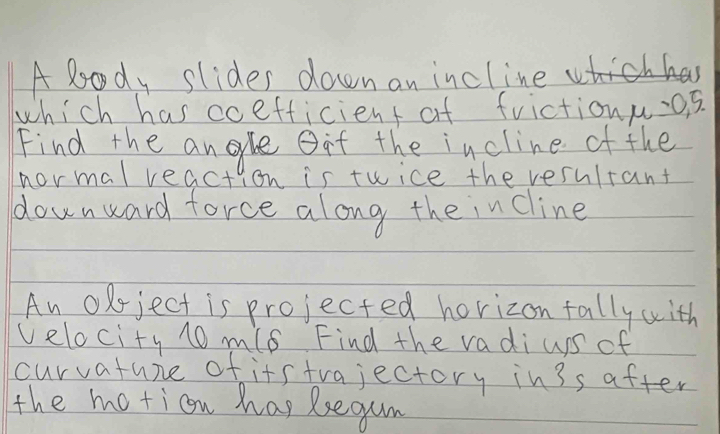 A body slides down an incline which has
which has coefficient of friction μ=0,5.
Find the angle θ of the incline of the
normal reaction is twice the resultant
downward force along the incline
An object is projected horizontally with
velocity 10 m/s Find the radius of
curvature of its trajectory in 3s after
the motion has begun